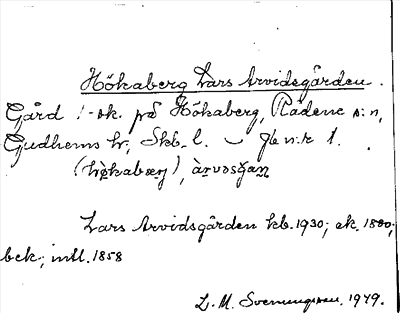 Hökaberg Lars Arvidsgården.
Gård /-sk. på Hökaberg, Rådene s:n,
Gudhems hd, Skb. l. – Jb n:r 1.
(hökabærj), àrvəsgan
Lars Arvidsgården kb. 1930; ek. 1880;
bek., intl. 1858
L. M. Svenungsson. 1979.